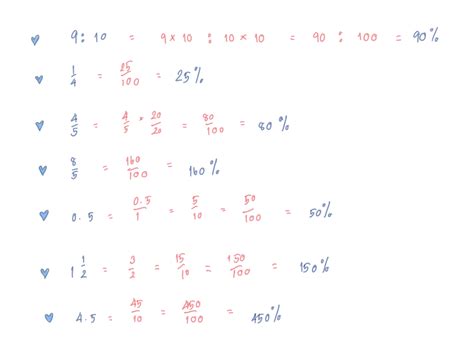 9 : 10 = 9 × 10 : 10 × 10 = 90 : 100 = 90%
1/4 = 25/100 = 25%
4/5 = 4/5 × 20/20 = 80/100 = 80%
8/5 = 160/100 = 160%
0.5 = 0.5/1 = 5/10 = 50/100 = 50%
1 1/2 = 3/2 = 15/10 = 150/100 = 150%
4.5 = 45/10 = 450/100 = 450%